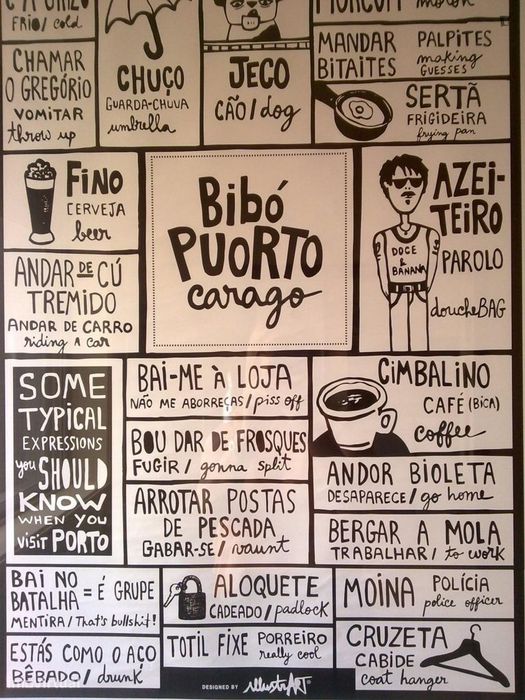 FRIO/cold
MORCOM
MANDAR PALPITES
BITAITES making
GUESSES
CHAMAR
O GREGÓRIO
VOMITAR
throw up
CHUÇO
GUARDA-CHUVA
umbrella
JECO
CÃO/dog
SERTÃ
FRIGIDEIRA
frying pan
FINO
CERVEJA
beer
Bibó
PUORTO
carago
AZEI-
TEIRO
PAROLO
doucheBAG
DOCE
&
BANANA
ANDAR DE CÚ
TREMIDO
ANDAR DE CARRO
riding A car
SOME
TYPICAL
EXPRESSIONS
you SHOULD
KNOW
WHEN YOU
VISIT PORTO
BAI-ME À LOJA
NÃO ME ABORREÇAS/piss off
CIMBALINO
CAFÉ (BICA)
coffee
BOU DAR DE FROSQUES
FUGIR/ gonna split
ARROTAR POSTAS
DE PESCADA
GABAR-SE/vaunt
ANDOR BIOLETA
DESAPARECE/go home
BERGAR A MOLA
TRABALHAR/ to work
BAI NO
BATALHA = É GRUPE
MENTIRA/That's bullshit!
ALOQUETE
CADEADO/padlock
MOINA POLÍCIA
police officer
ESTÁS COMO O AÇO
BÊBADO/ drunk
TOTIL FIXE PORREIRO
really cool
CRUZETA
CABIDE
coat hanger
DESIGNED BY illustrART